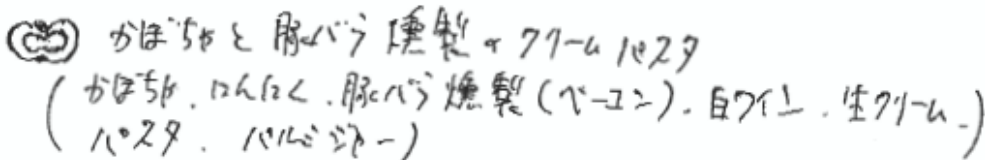 かぼちゃと豚バラ燻製のクリームパスタ
(かぼちゃ、にんにく、豚バラ燻製(ベーコン)、白ワイン、生クリーム、
パスタ、パルミジャーノ)